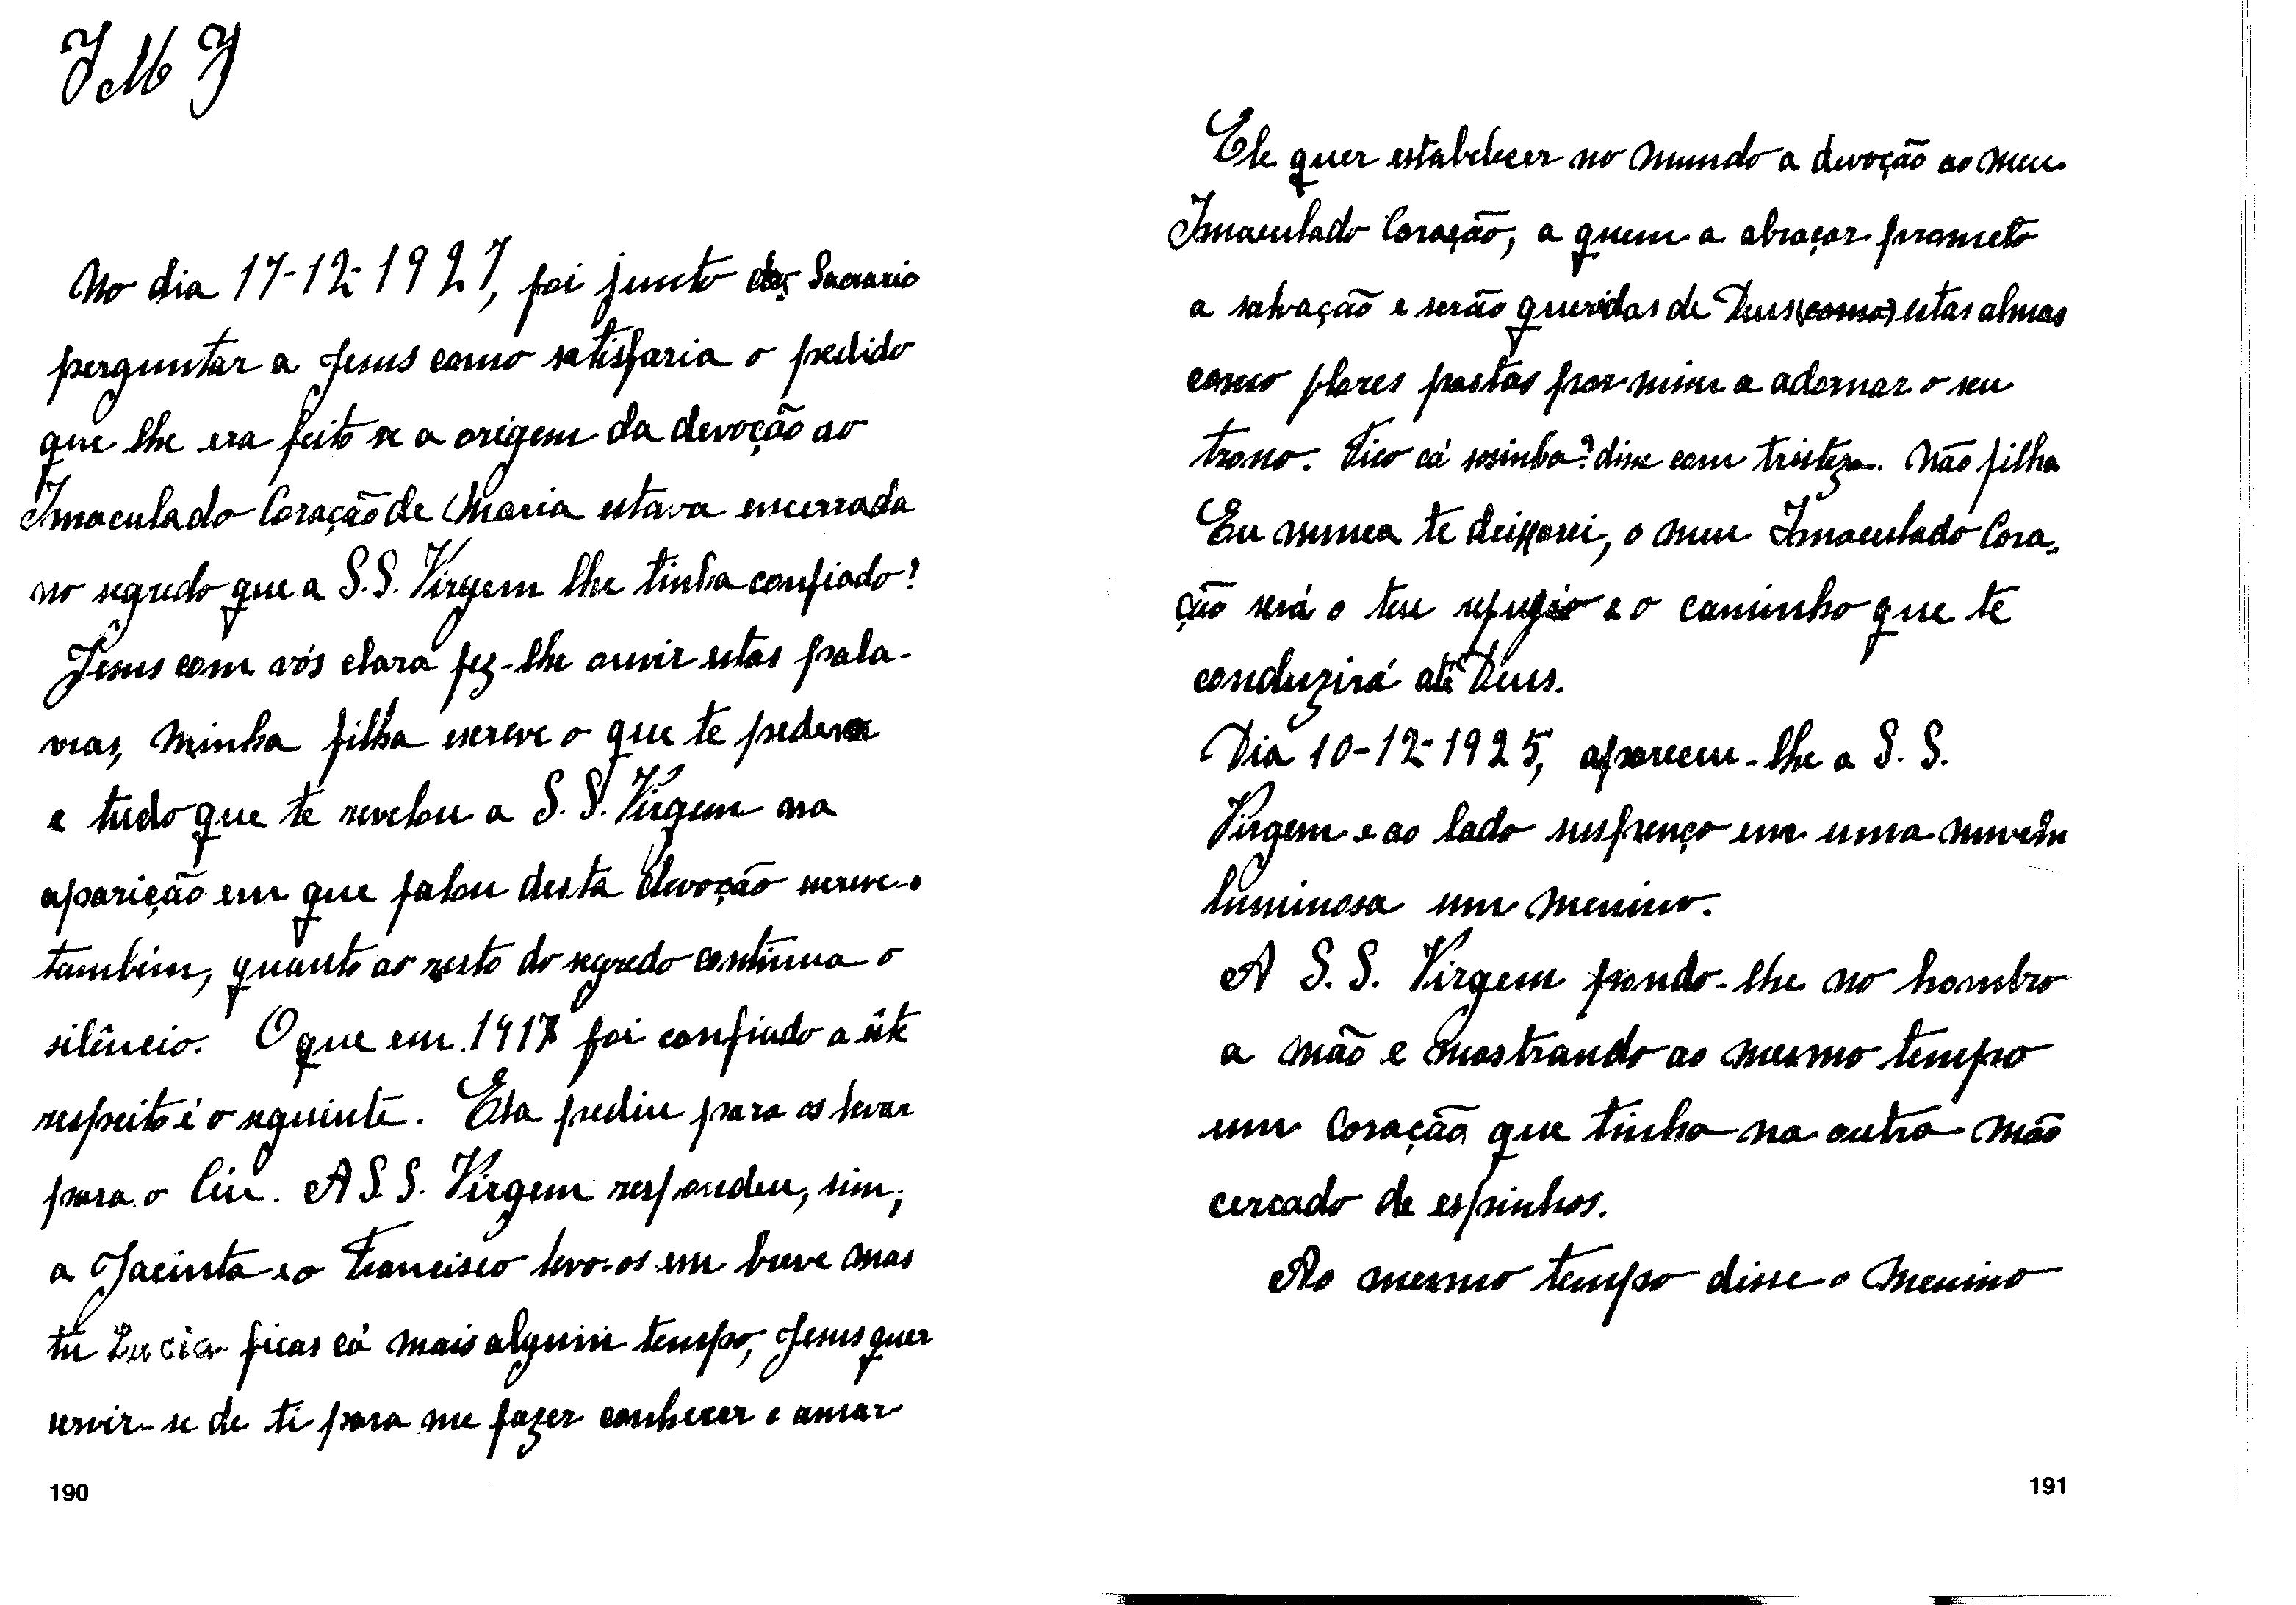 J M J
No dia 17-12-1927, foi junto do Sacrario
perguntar a Jesus como satisfaria o pedido
que lhe era feito se a origem da devoção ao
Imaculado Coração de Maria estava encerrada
no segredo que a S.S. Virgem lhe tinha confiado?
Jesus com vós clara fez-lhe ouvir estas pala-
vras, minha filha escreve o que te pedem
e tudo que te revelou a S. S. Virgem na
aparição em que falou desta devoção escreve-o
também, quanto ao resto do segredo continua o
silêncio. O que em 1917 foi confiado a êste
respeito é o seguinte. Ela pediu para os levar
para o Céu. A S. S. Virgem respondeu, sim,
a Jacinta e o Francisco levo-os em breve mas
tu Lucia ficas cá mais algum tempo, Jesus quer
servir-se de ti para me fazer conhecer e amar
190
Ele quer estabelecer no mundo a devoção ao meu
Imaculado Coração, a quem a abraçar prometo
a salvação e serão queridas de Deus (como) estas almas
como flores postas por mim a adornar o seu
trono. Fico cá sosinha? disse com tristeza. Não filha
Eu nunca te deixarei, o meu Imaculado Cora-
ção será o teu refugio e o caminho que te
conduzirá até Deus.
Dia 10-12-1925, apareceu-lhe a S. S.
Virgem e ao lado suspenço em uma nuvem
luminosa um menino.
A S. S. Virgem pondo-lhe no hombro
a mão e mostrando ao mesmo tempo
um Coração que tinha na outra mão
cercado de espinhos.
Ao mesmo tempo disse o Menino
191